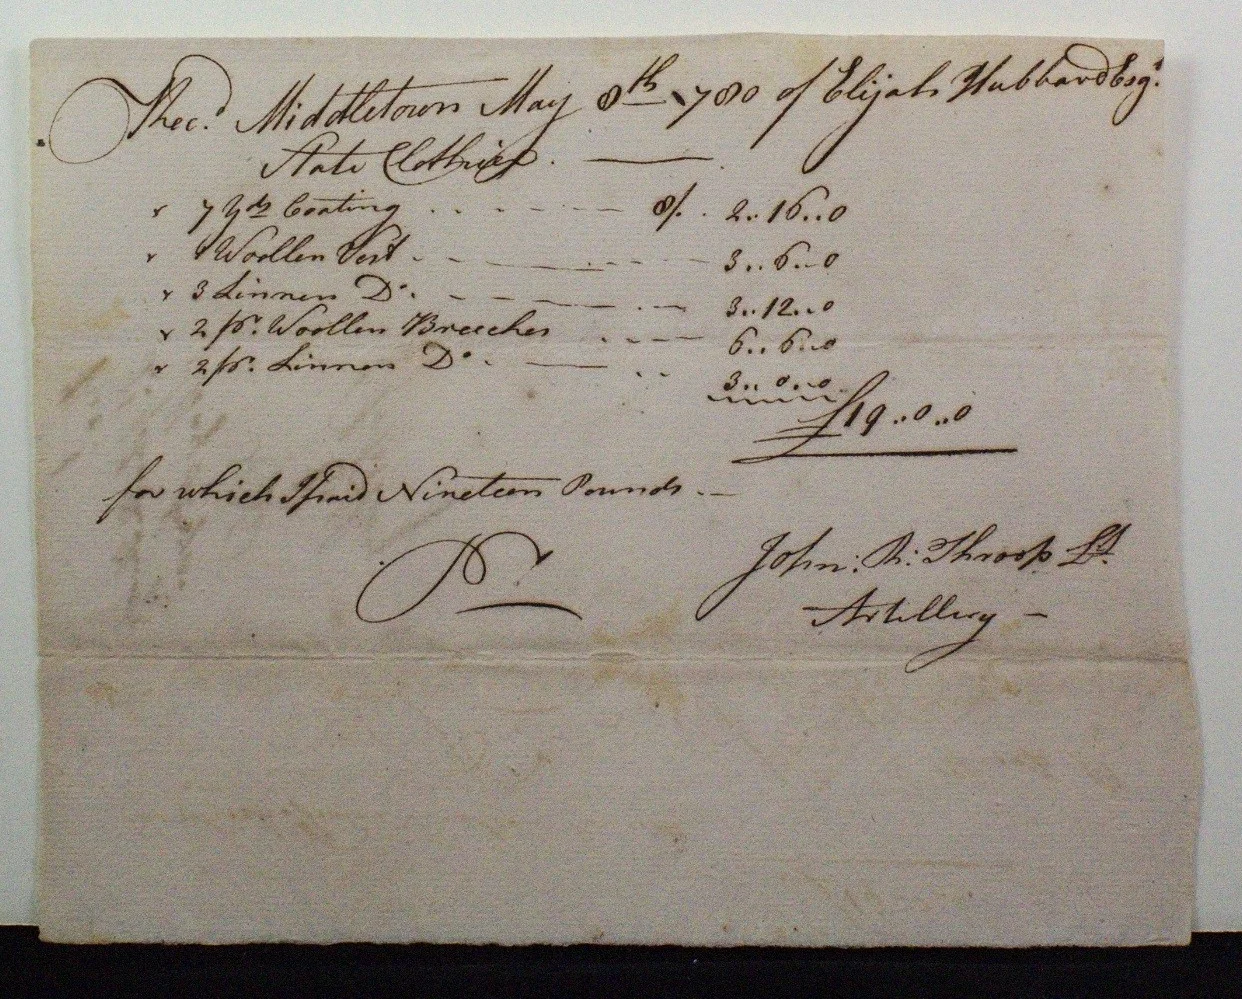 Rec.d Middletown May 8th 1780 of Elijah Hubbard Esqr
State Clothier.
7 Yds Coating 8/. 2..16..0
1 Woollen Vest 3..6..0
3 Linnen Do. 3..12..0
2 pr. Woollen Breeches 6..6..0
2 pr. Linnen Do. 3..0..0
£19..0..0
for which I paid Nineteen Pounds
John: R: Throop Lt.
Artillery